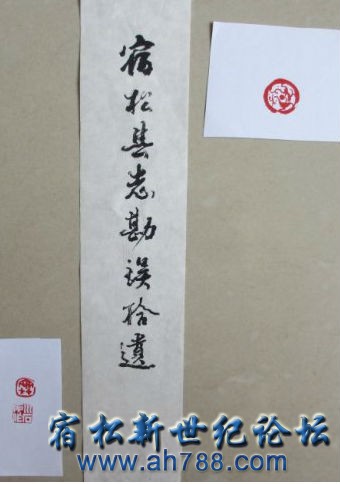 宿松县志勘误拾遗
宿松新世纪论坛
www.ah788.com